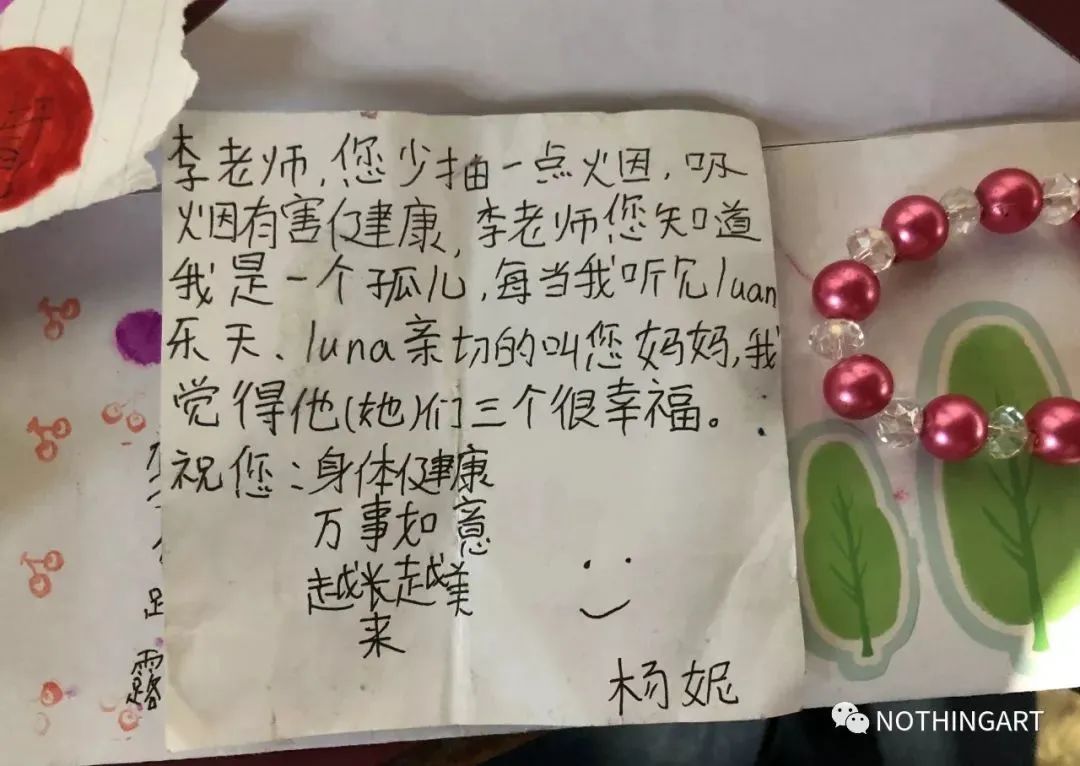 李老师,您少抽一点烟,吸
烟有害健康,李老师您知道
我是一个孤儿,每当我听见luan
乐天、luna亲切的叫您妈妈,我
觉得他(她)们三个很幸福。
祝您:身体健康
万事如意
越长越美
来
杨妮
露
NOTHINGART